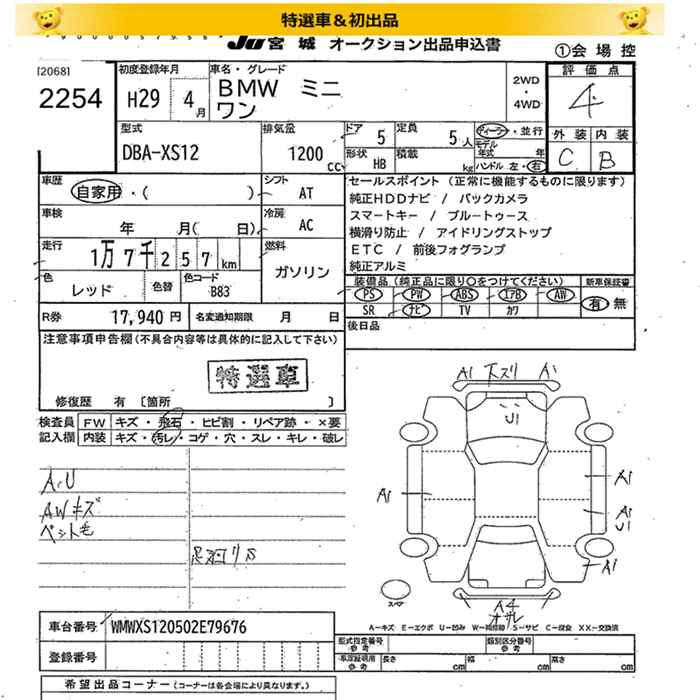 特選車＆初出品
JU 宮城 オークション出品申込書
①会場控
[2068]
2254
初度登録年月
H29 4月
車名・グレード
BMW ミニ
ワン
2WD
・
4WD
評価点
4
外装 内装
C B
型式
DBA-XS12
排気量
1200 CC
ドア 5
定員 5人
形状 HB
積載 kg
ディーラー・並行
モデル年式 年
ハンドル 左・右
車歴
自家用・( )
シフト
AT
車検
年 月( 日)
冷房
AC
走行
1万7千257km
燃料
ガソリン
色
レッド
色替
色コード
B83
R券 17,940円
名変通知期限 月 日
セールスポイント (正常に機能するものに限ります)
純正HDDナビ / バックカメラ
スマートキー / ブルートゥース
横滑り防止 / アイドリングストップ
ETC / 前後フォグランプ
純正アルミ
装備品 (純正品に限り○をつけてください)
PS PW ABS エアB AW
SR ナビ TV カワ
新車保証書
有 無
後日品
注意事項申告欄 (不具合内容等は具体的に記入して下さい)
特選車
修復歴 有 [箇所 ]
検査員記入欄
FW キズ・飛石・ヒビ割・リペア跡・×要
内装 キズ・汚レ・コゲ・穴・スレ・キレ・破レ
A.U
AWキズ
ペット毛
足廻りS
A1 下スリ
U1
A1
A1
A1
U1
A1
A4
スペア
A－キズ E－エクボ U－凹み W－補修跡 S－サビ C－腐食 XX－交換済
車台番号 WMWXS120502E79676
登録番号
型式指定番号 参考
類別区分番号 参考
車庫証明用 参考
長さ cm
幅 cm
高さ cm
希望出品コーナー (コーナーは各会場により異なります。)